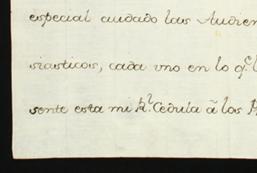 especial cuidado las Audien
siasticos, cada vno en lo q.e l
sente esta mi R.l Cedula â los